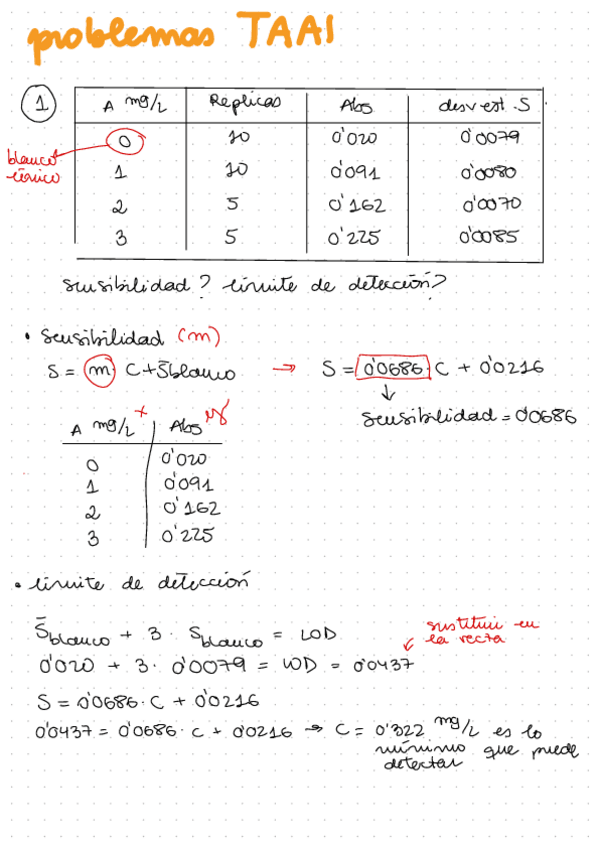 problemas TAAI
1
A mg/L Replicas Abs desv est. S
0 10 0'020 0'0079
blanco
teórico
1 10 0'091 0'0080
2 5 0'162 0'0070
3 5 0'225 0'0085
sensibilidad? límite de detección?
• sensibilidad (m)
S = m · C + S̄blanco → S = 0'0686 · C + 0'0216
↓
sensibilidad = 0'0686
A mg/L x Abs y
0 0'020
1 0'091
2 0'162
3 0'225
• límite de detección
S̄blanco + 3 · Sblanco = LOD
sustituir en
la recta
0'020 + 3 · 0'0079 = LOD = 0'0437
S = 0'0686 · C + 0'0216
0'0437 = 0'0686 · C + 0'0216 → C = 0'322 mg/L es lo
mínimo que puede
detectar